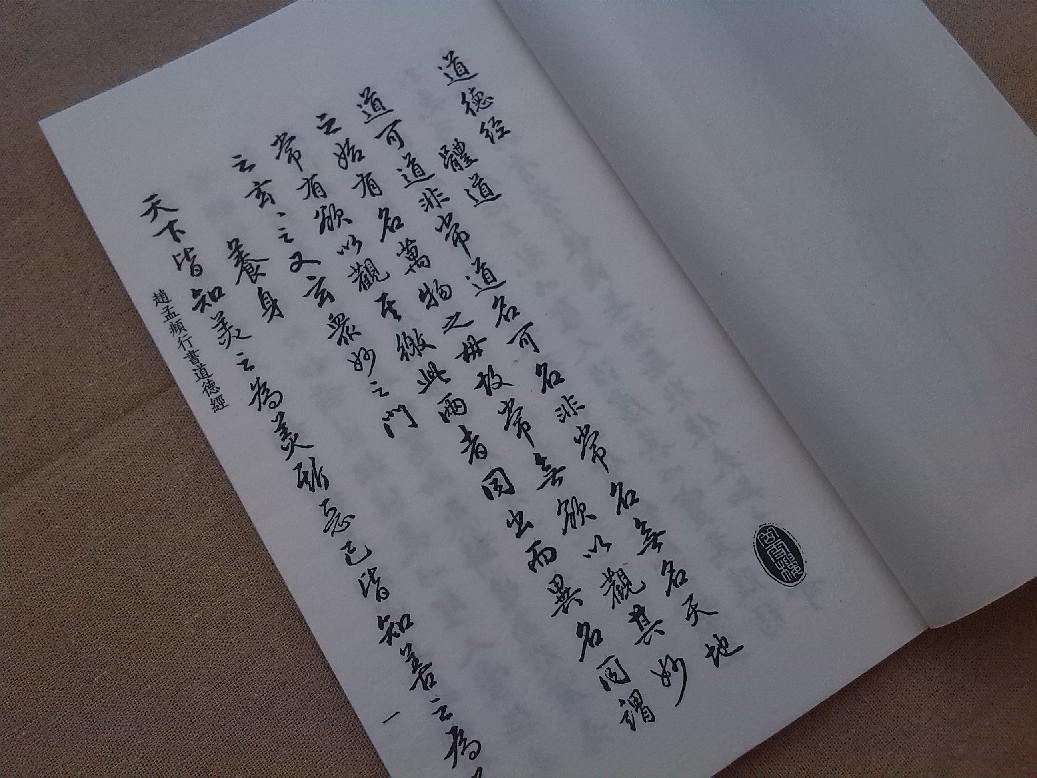 道德經
體道
道可道非常道名可名非常名無名天地
之始有名萬物之母故常無欲以觀其妙
常有欲以觀其徼此兩者同出而異名同謂
之玄〻之又玄衆妙之門
養身
天下皆知美之為美斯惡已皆知善之為
趙孟頫行書道德經
一